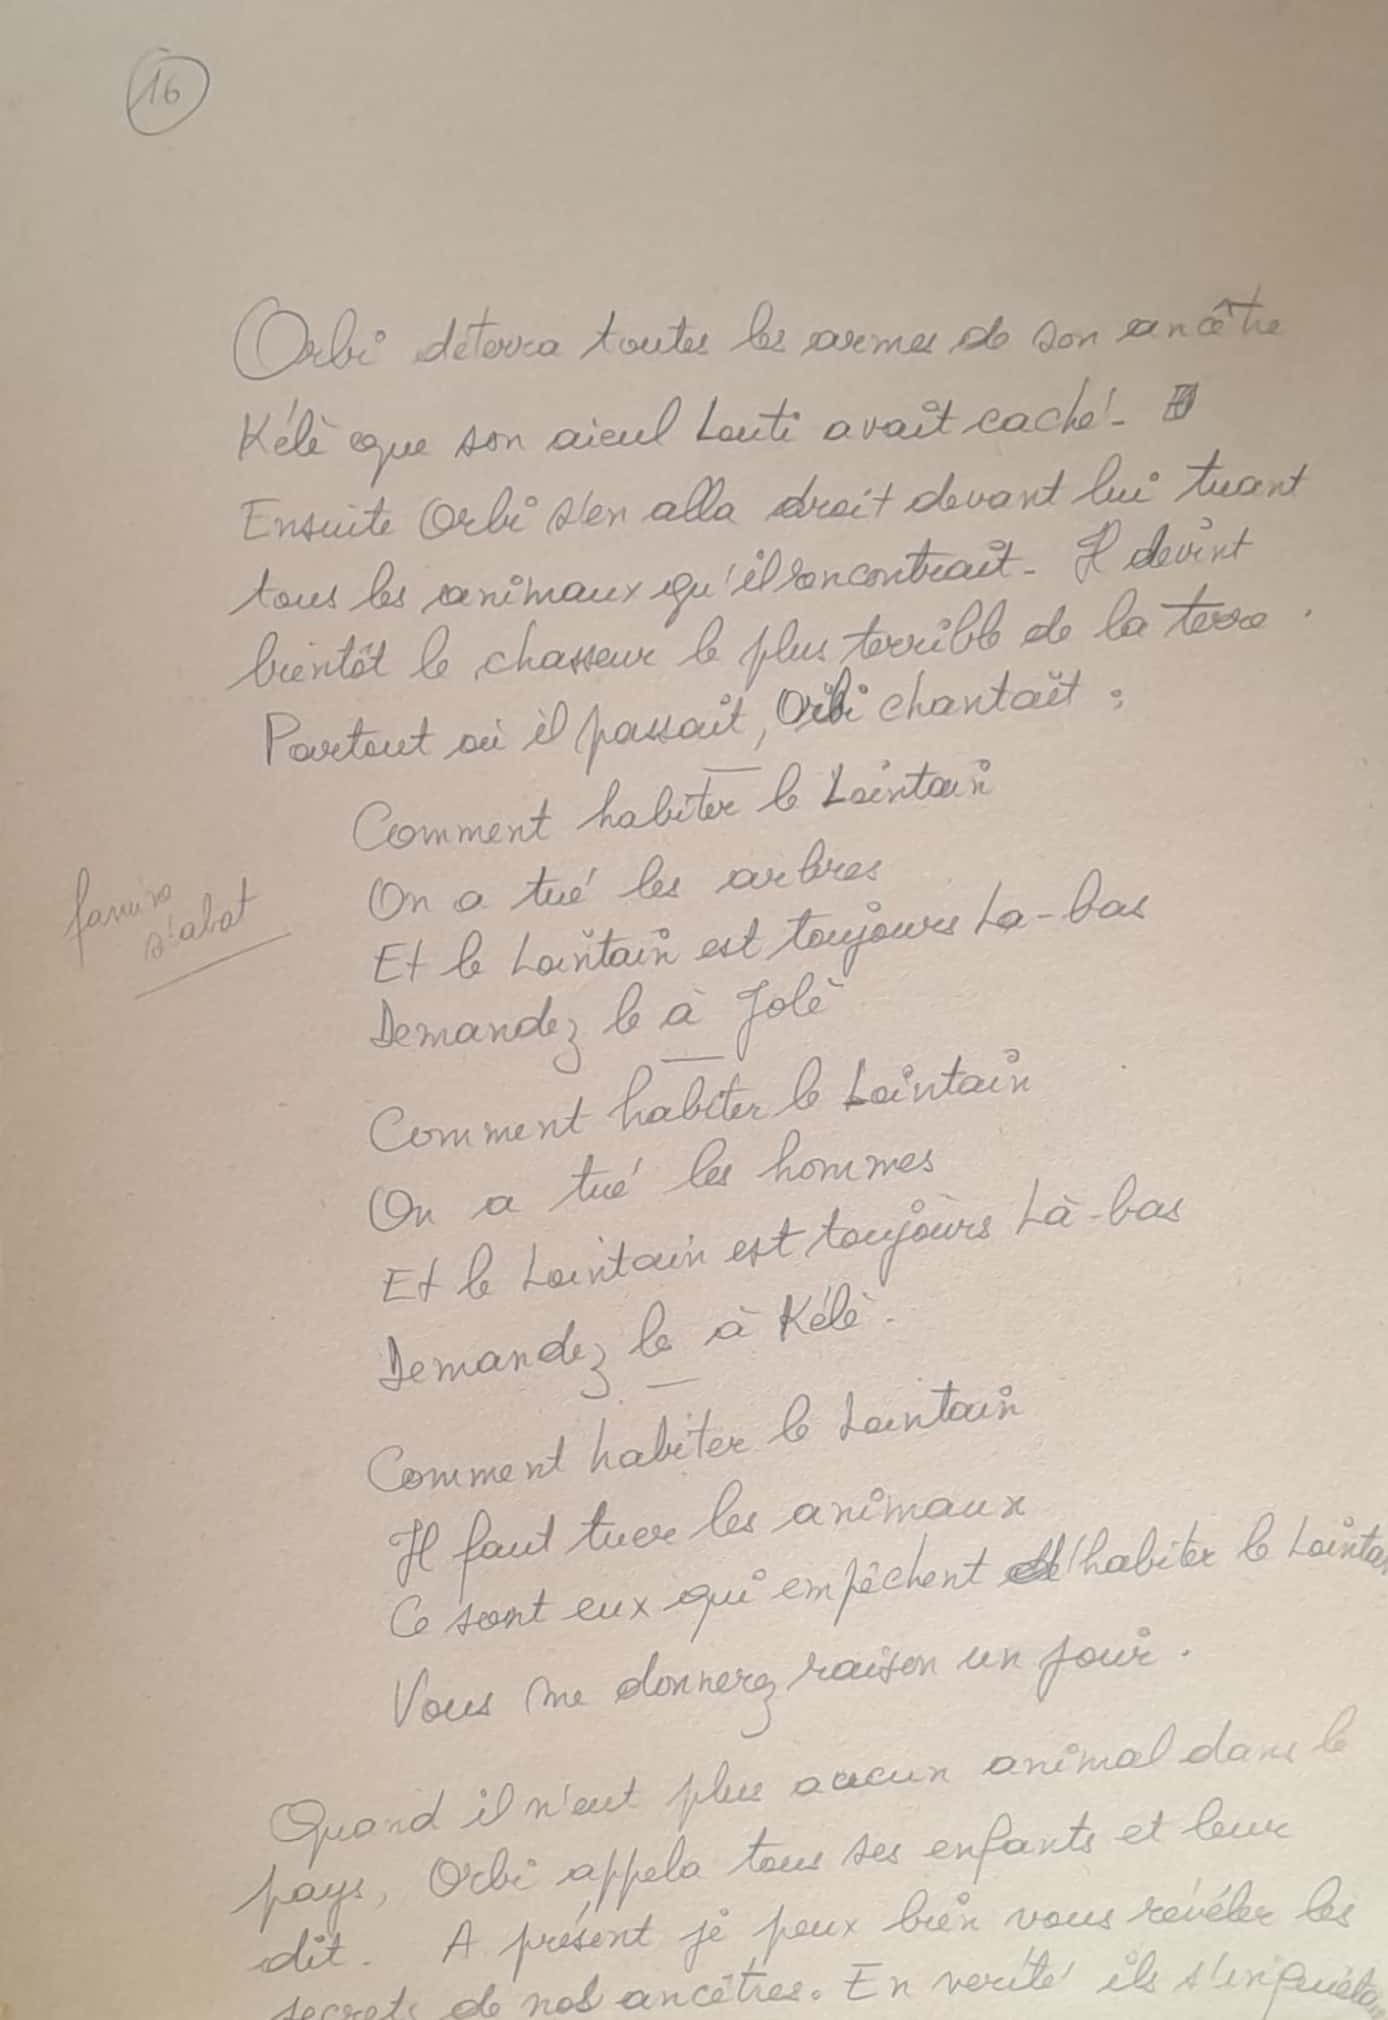 16
Orbi déterra toutes les armes de son ancêtre
Kélè que son aieul Louti avait caché.
Ensuite Orbi s'en alla droit devant lui tuant
tous les animaux qu'il rencontrait. Il devint
bientôt le chasseur le plus terrible de la terre.
Partout où il passait, Orbi chantait :
Comment habiter le Lointain
On a tué les arbres
Et le Lointain est toujours La-bas
Demandez le à Jolè
Comment habiter le Lointain
On a tué les hommes
Et le Lointain est toujours Là-bas
Demandez le à Kélè.
Comment habiter le Lointain
Il faut tuer les animaux
Ce sont eux qui empêchent d'habiter le Lointa
Vous me donnerez raison un jour.
Quand il n'eut plus aucun animal dans le
pays, Orbi appela tous ses enfants et leur
dit. A présent je peux bien vous révéler les
secrets de nos ancêtres. En verité ils
s'abat